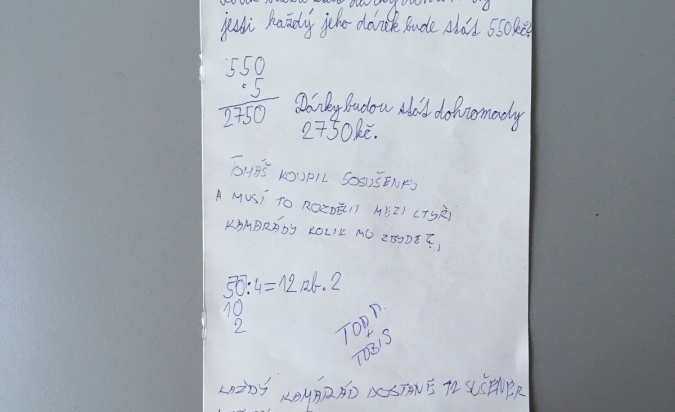 jestli každý jeho dárek bude stát 550kč?
550
· 5
2750 Dárky budou stát dohromady
2750kč.
TOMÁŠ KOUPIL 50 SUŠENKY
A MUSÍ TO ROZDĚLIT MEZI ČTYŘI
KAMARÁDY KOLIK MU ZBYDE?
50:4=12 zb. 2
10
2
TOBIS
KAŽDÝ KAMARÁD DOSTANE 12 SUŠENEK